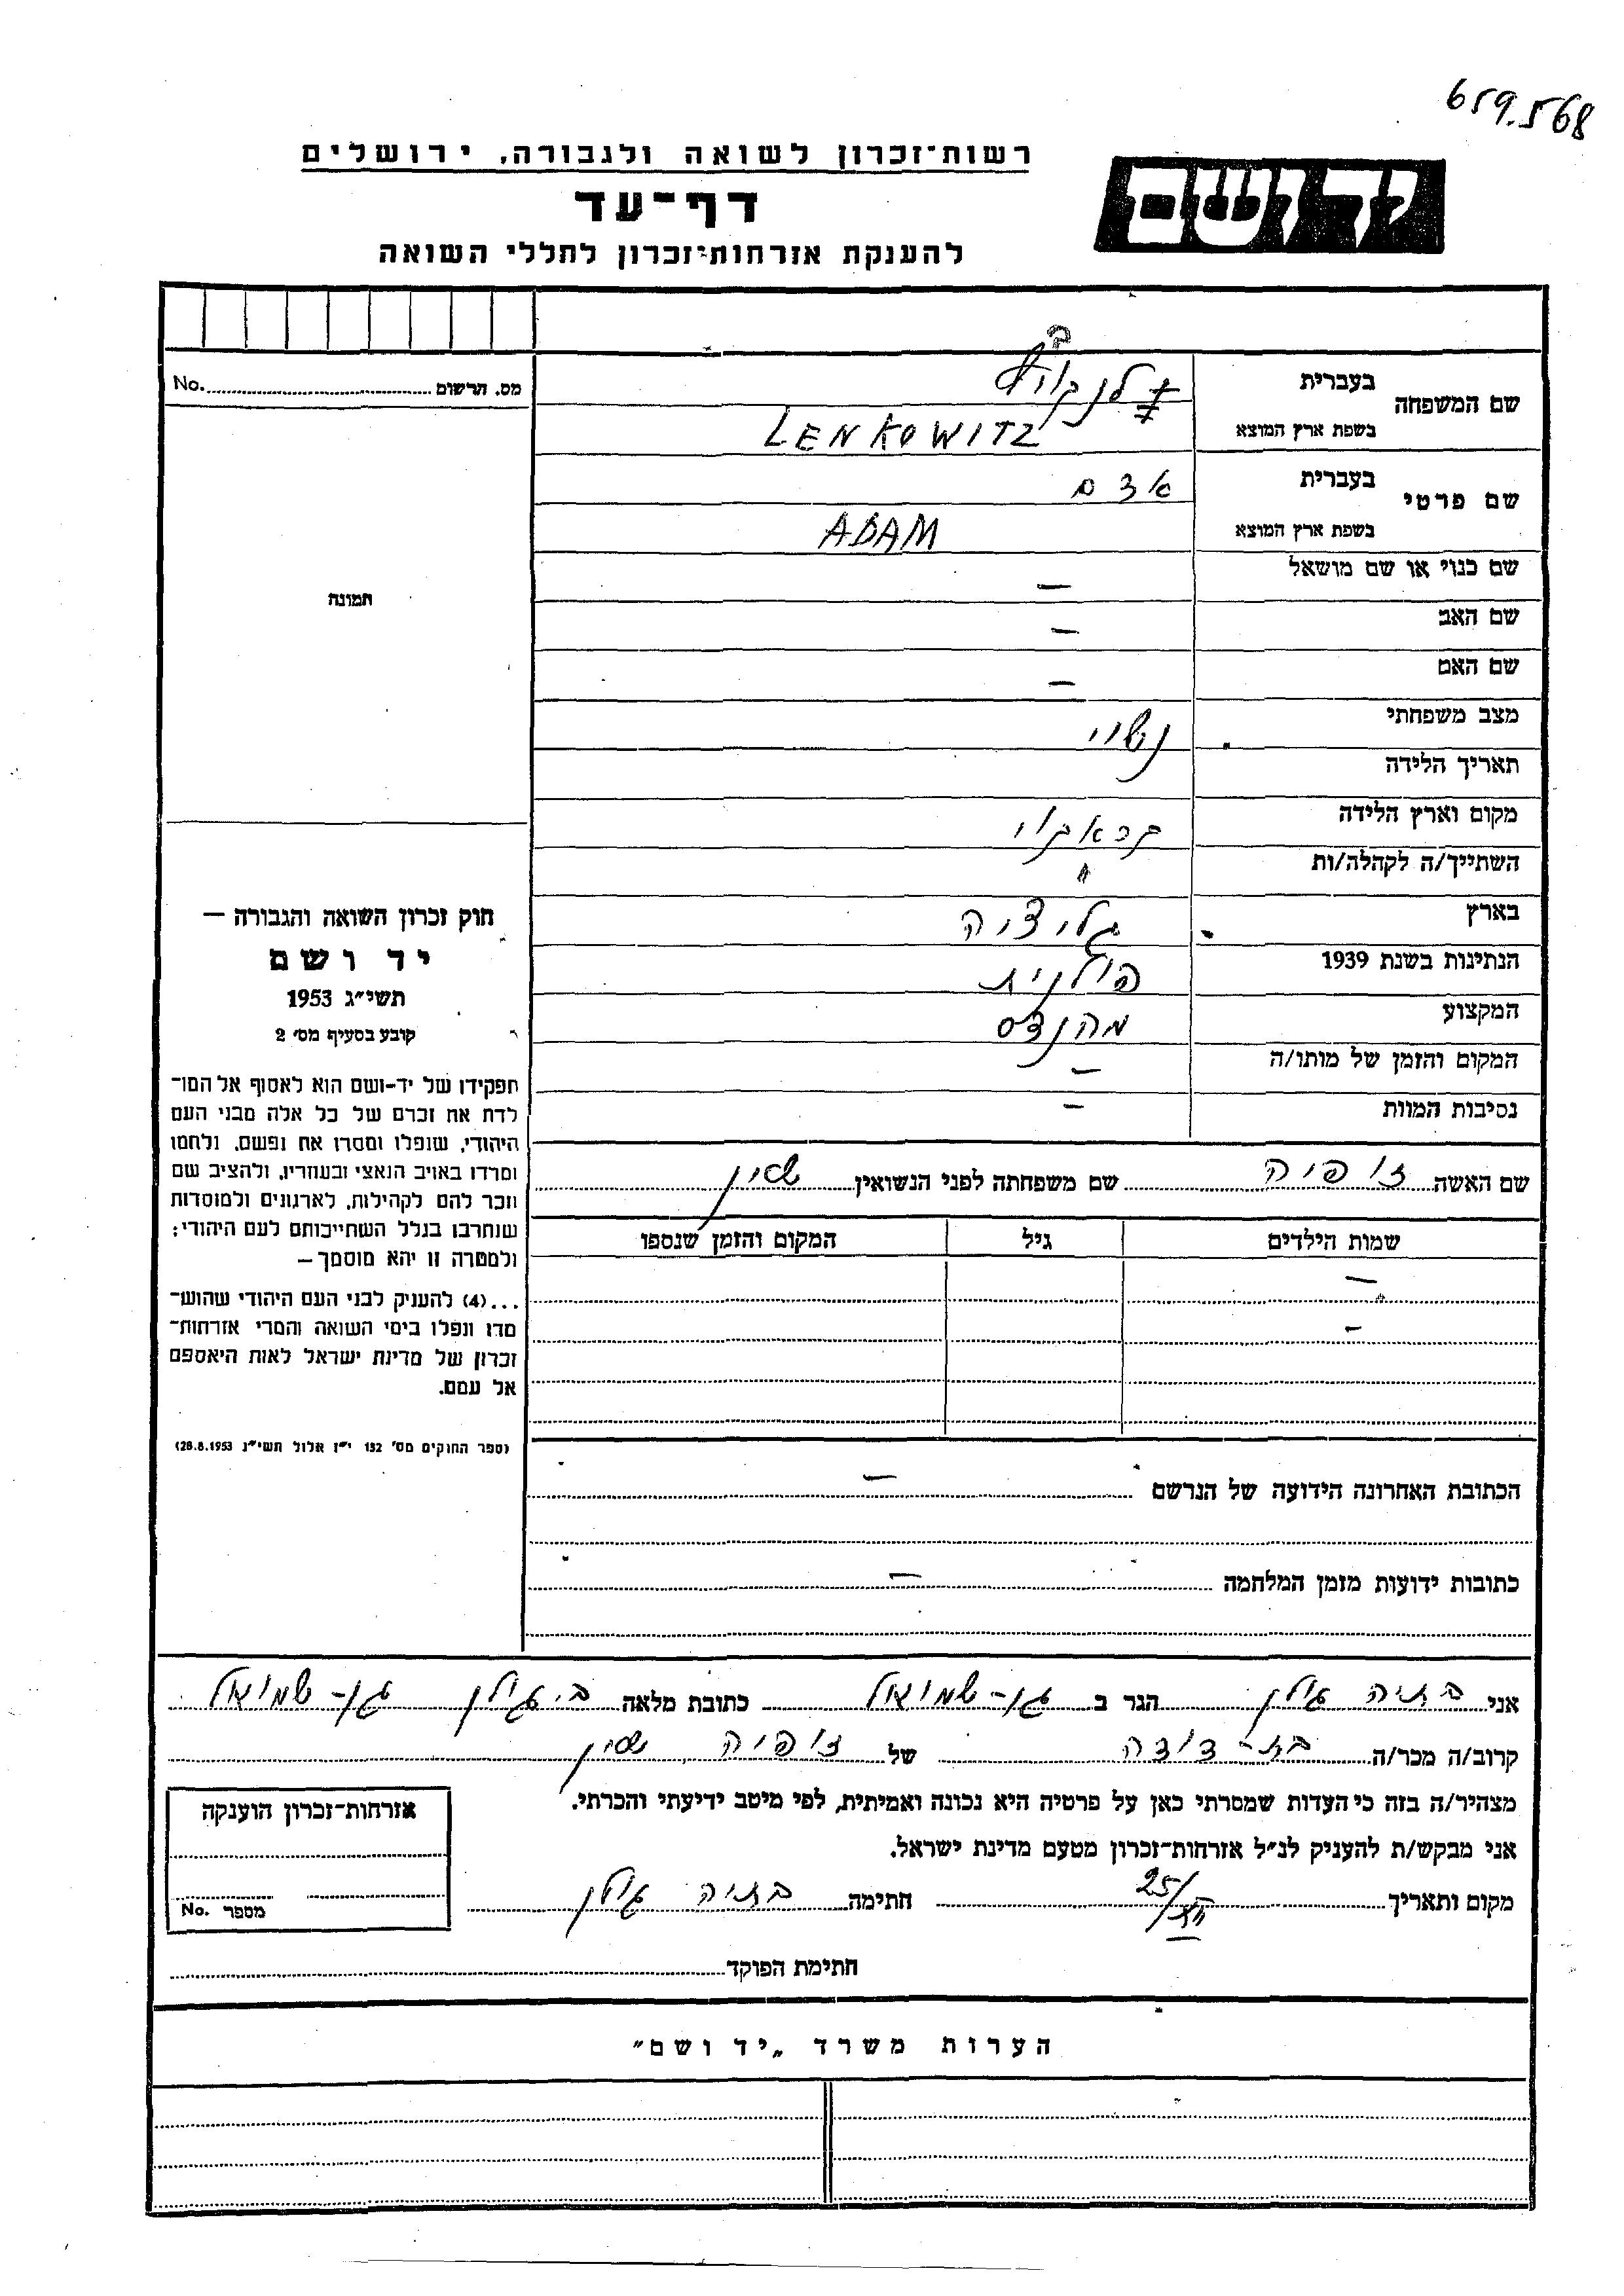 659.568
רשות-זכרון לשואה ולגבורה, ירושלים
יד ושם
דף-עד
להענקת אזרחות-זכרון לחללי השואה
מס. הרשום No.
שם המשפחה
בעברית
בשפת ארץ המוצא LENKOWITZ
שם פרטי
בעברית אדם
בשפת ארץ המוצא ADAM
שם כנוי או שם מושאל —
שם האב —
שם האם —
מצב משפחתי נשוי
תאריך הלידה
מקום וארץ הלידה קראקוי
השתייך/ה לקהלה/ות "
בארץ גליציה
הנתינות בשנת 1939 פולנית
המקצוע מהנדס
המקום והזמן של מותו/ה —
נסיבות המוות —
תמונה
חוק זכרון השואה והגבורה —
יד ושם
תשי״ג 1953
קובע בסעיף מס׳ 2
תפקידו של יד-ושם הוא לאסוף אל המו-
לדת את זכרם של כל אלה מבני העם
היהודי, שנפלו ומסרו את נפשם, נלחמו
ומרדו באויב הנאצי ובעוזריו, ולהציב שם
וזכר להם לקהילות, לארגונים ולמוסדות
שנחרבו בגלל השתייכותם לעם היהודי;
ולמטרה זו יהא מוסמך —
...(4) להעניק לבני העם היהודי שהוש-
מדו ונפלו בימי השואה והמרי אזרחות-
זכרון של מדינת ישראל לאות היאספם
אל עמם.
(ספר החוקים מס׳ 132 י״ז אלול תשי״ג 28.8.1953)
שם האשה זופיה שם משפחתה לפני הנשואין שיין
שמות הילדים גיל המקום והזמן שנספו
—
—
הכתובת האחרונה הידועה של הנרשם —
כתובות ידועות מזמן המלחמה —
אני בתיה גילן הגר ב גן-שמואל כתובת מלאה ב. גילן גן-שמואל
קרוב/ה מכר/ה בת-דודה של זופיה שיין
מצהיר/ה בזה כי העדות שמסרתי כאן על פרטיה היא נכונה ואמיתית, לפי מיטב ידיעתי והכרתי.
אני מבקש/ת להעניק לנ״ל אזרחות-זכרון מטעם מדינת ישראל.
מקום ותאריך חתימה בתיה גילן
אזרחות-זכרון הוענקה
מספר No.
חתימת הפוקד
הערות משרד „יד ושם״